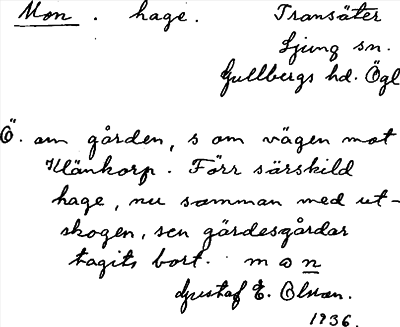 Mon. hage. Transäter
Ljung sn.
Gullbergs hd. Ögl
Ö. om gården, s om vägen mot
Klänkorp. Förr särskild
hage, nu samman med ut-
skogen, sen gärdesgårdar
tagits bort. mon
Gustaf E. Olson.
1936.